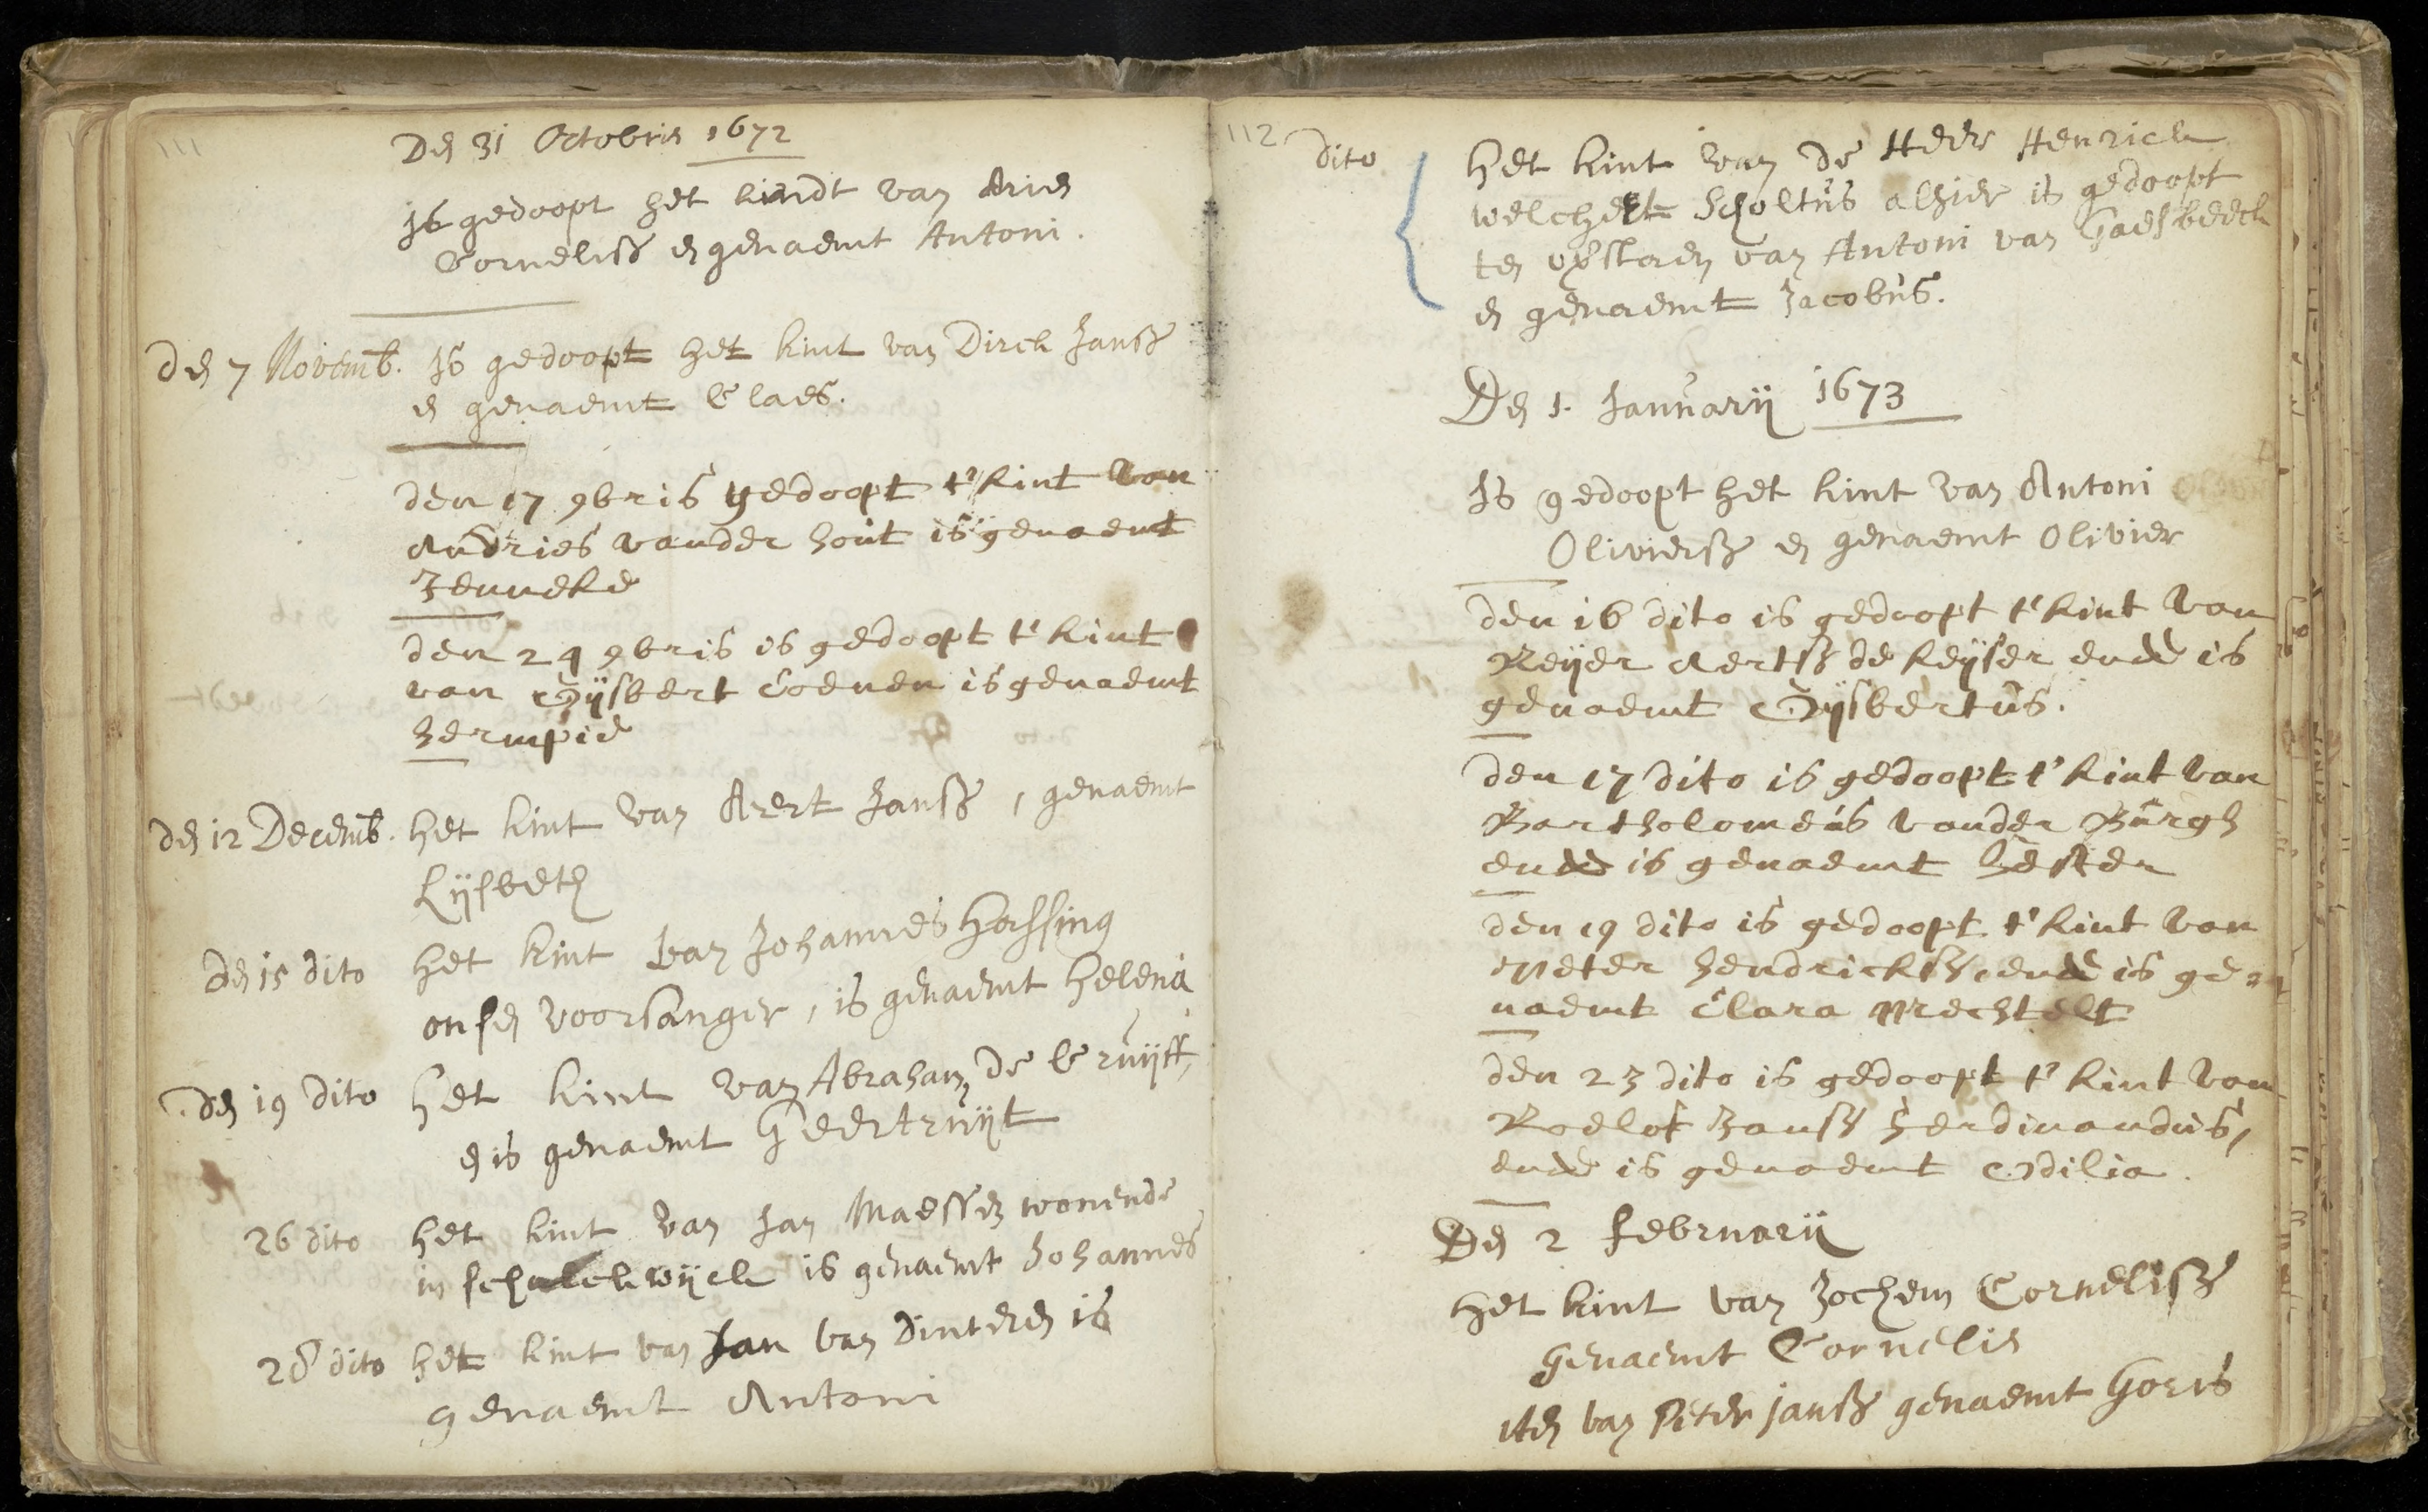 111
Den 31 Octobris 1672
Is gedoopt het kindt van Aries
Cornelisz en genaemt Antoni.
Den 7 Novemb. Is gedoopt het kint van Dirck Jansz
en genaemt Claes.
den 17 9bris gedoopt t'kint van
Andries vander hout is genaemt
Jenneke
den 24 9bris is gedoopt t'kint
van Gijsbert Coenen is genaemt
hermpie
den 12 Decemb. het kint van Aert Jansz, genaemt
Lijsbeth
den 15 dito het kint van Johannes Hassing
onsen voorsanger, is genaemt Helena
den 19 dito het kint van Abraham de Cruijff,
en is genaemt Geertruijt
26 dito het kint van Jan Maessen wonende
in schalckwijck is genaemt Johannes
28 dito het kint van Jan van Dinteren is
genaemt Antoni
112
dito het kint van de Heer Henrick
welchelt Scholtus alhier is gedoopt
ten opstaen van Antoni van Gaesbeeck
en genaemt Jacobus.
Den 1. Januarij 1673
Is gedoopt het kint van Antoni
Oliviersz en genaemt Olivier
den 16 dito is gedoopt t'kint van
Reijer Aertsz de keijser ende is
genaemt Gijsbertus.
den 17 dito is gedoopt t'kint van
Bartholomeus vander Burgh
ende is genaemt hester
den 19 dito is gedoopt t'kint van
Peter hendricksz, ende is ge=
naemt Clara Mechtelt
den 23 dito is gedoopt t'kint van
Roelof Jansz Ferdinandus,
ende is genaemt Odilia.
Den 2 Februarij
het kint van Jochem Cornelisz
Genaemt Cornelis
Iten van Peter jansz genaemt Goris